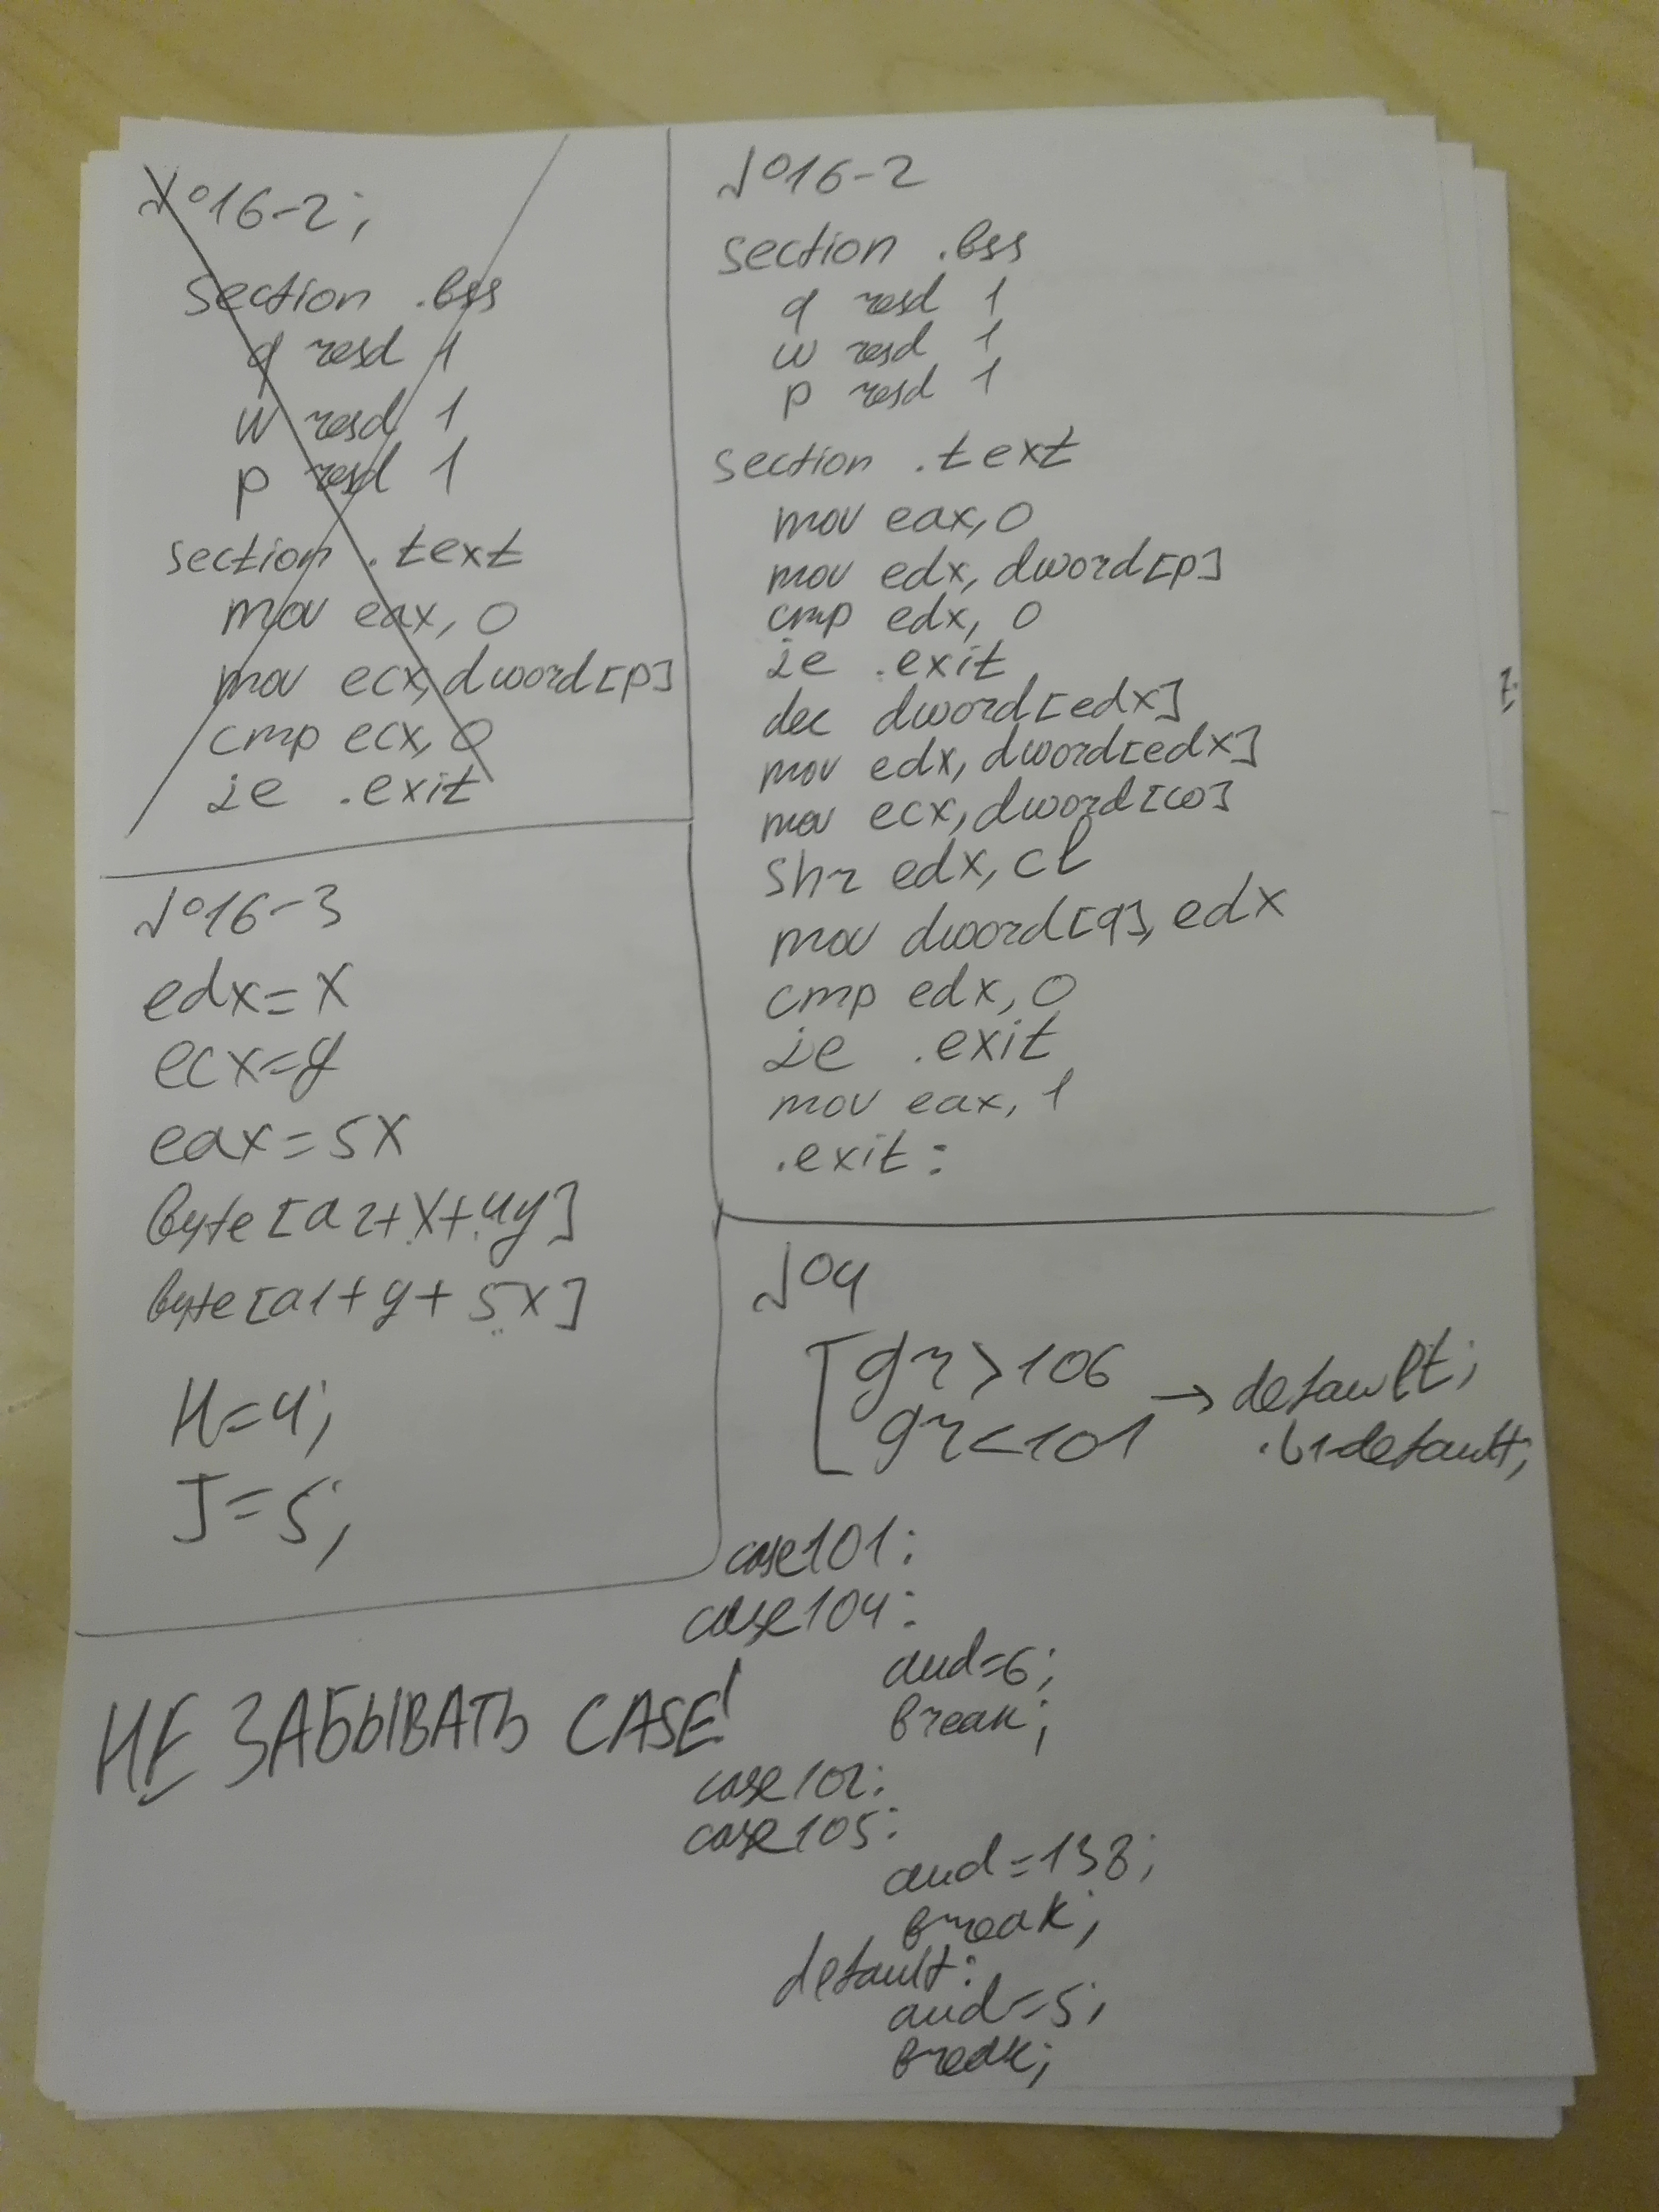 №16-2;
section .bss
q resd 1
w resd 1
p resd 1
section .text
mov eax, 0
mov ecx, dword[p]
cmp ecx, 0
je .exit
№16-3
edx=x
ecx=y
eax=5x
byte[a2+x+4y]
byte[a1+y+5x]
H=4;
J=5;
НЕ ЗАБЫВАТЬ CASE!
№16-2
section .bss
q resd 1
w resd 1
p resd 1
section .text
mov eax, 0
mov edx, dword[p]
cmp edx, 0
je .exit
dec dword[edx]
mov edx, dword[edx]
mov ecx, dword[w]
shr edx, cl
mov dword[q], edx
cmp edx, 0
je .exit
mov eax, 1
.exit:
№4
gr>106
gr<101 → default;
.L1-default;
case101:
case104:
aud=6;
break;
case102:
case105:
aud=138;
break;
default:
aud=5;
break;